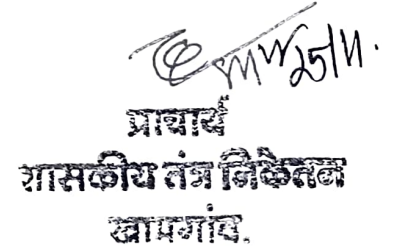 25/11.
प्राचार्य
शासकीय तंत्र निकेतन
खामगांव.